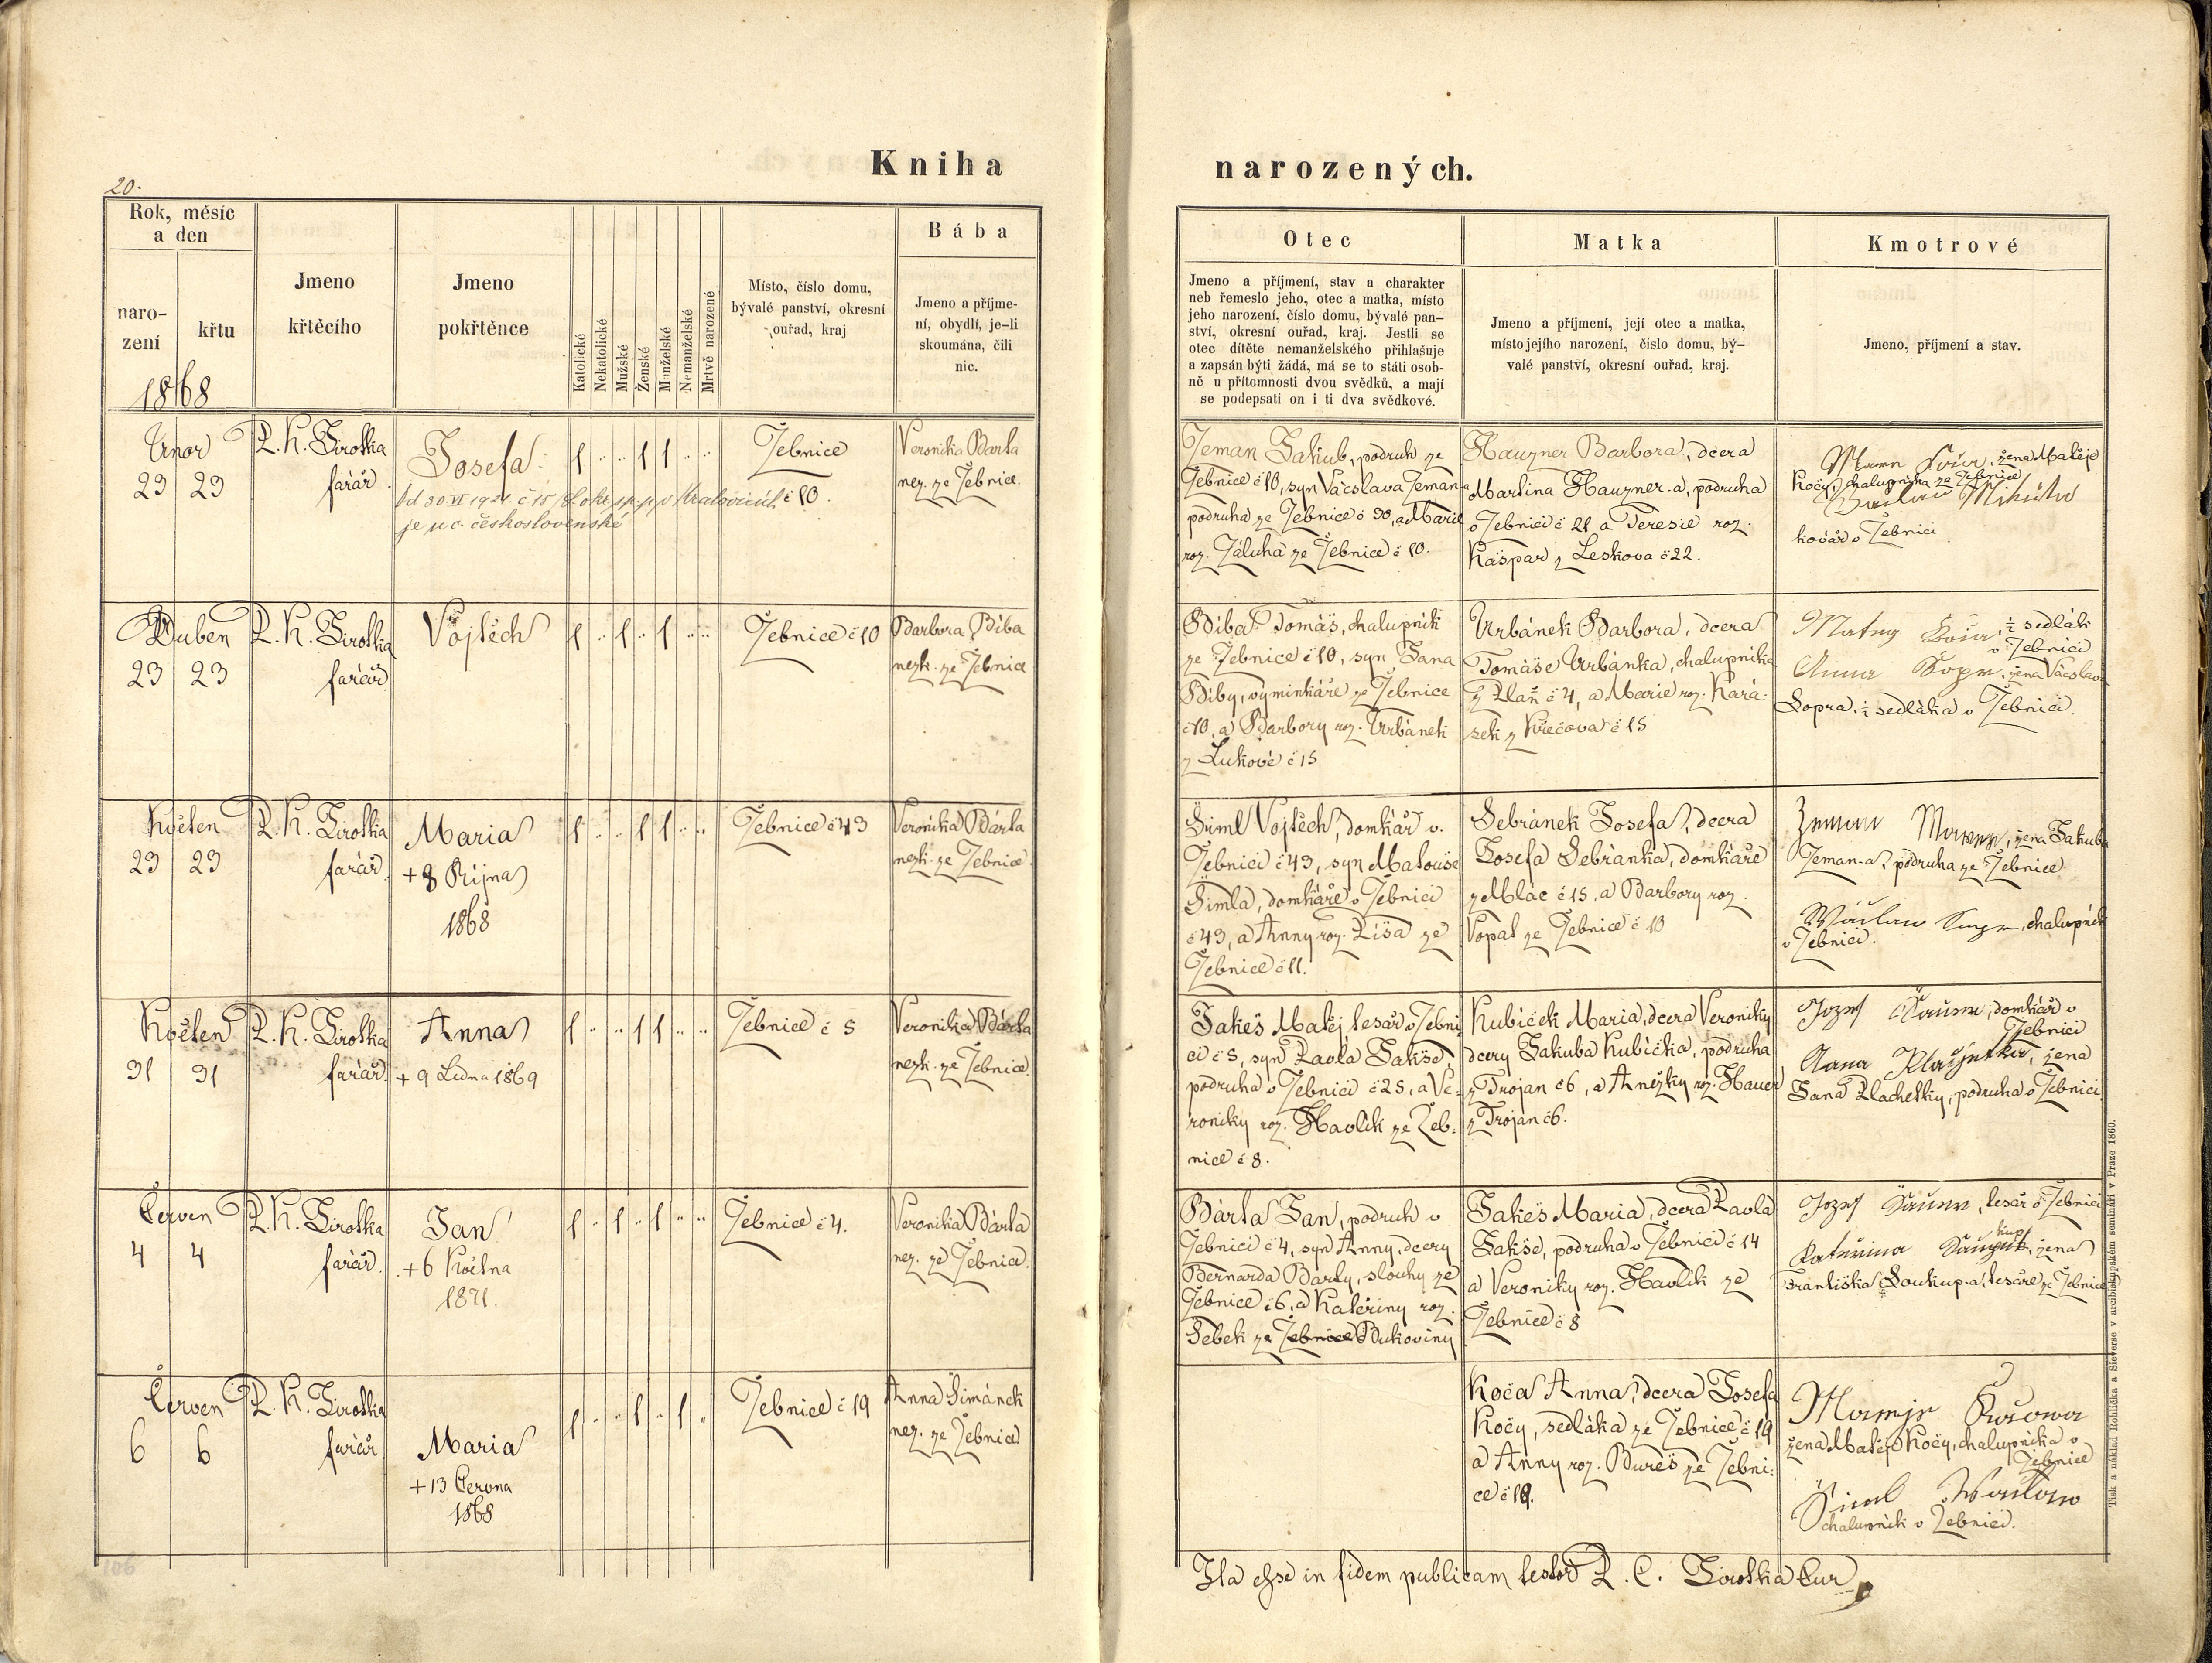 20.
Kniha narozených.
Rok, měsíc a den
narození
křtu
1868
Jmeno křtěcího
Jmeno pokřtěnce
Katolické
Nekatolické
Mužské
Ženské
Manželské
Nemanželské
Mrtvě narozené
Místo, číslo domu,
bývalé panství, okresní
ouřad, kraj
Bába
Jmeno a příjme-
ní, obydlí, je-li
skoumána, čili
nic.
Otec
Jmeno a příjmení, stav a charakter
neb řemeslo jeho, otec a matka, místo
jeho narození, číslo domu, bývalé pan-
ství, okresní ouřad, kraj. Jestli se
otec dítěte nemanželského přihlašuje
a zapsán býti žádá, má se to státi osob-
ně u přítomnosti dvou svědků, a mají
se podepsati on i ti dva svědkové.
Matka
Jmeno a příjmení, její otec a matka,
místo jejího narození, číslo domu, bý-
valé panství, okresní ouřad, kraj.
Kmotrové
Jmeno, příjmení a stav.
Unor
23 23
P. K. Sirotka
farář
Josefa
je nc. československé
1 .. .. 1 1 .. ..
Žebnice
č 10.
Veronika Barta
nez. ze Žebnice.
Zeman Jakub, podruh ze
Žebnice č 10, syn Vácslava Zemana
podruha ze Žebnice č 30, a Marie
roz. Záluha ze Žebnice č 10.
Hauzner Barbora, dcera
Martina Hauzner-a, podruha
v Žebnici č 21 a Teresie roz.
Kašpar z Leskova č 22.
žena Matěje
Koči, chalupníka ze Žebnice
Mikuta
kovář v Žebnici
Duben
23 23
P. K. Sirotka
farář
Vojtěch
1 .. 1 .. 1 .. ..
Žebnice č 10
Barbora Biba
nezk. ze Žebnice
Biba Tomáš, chalupník
ze Žebnice č 10, syn Jana
Biby, výminkáře ze Žebnice
č 10, a Barbory roz. Urbánek
z Lukové č 15
Urbánek Barbora, dcera
Tomáše Urbánka, chalupníka
z Plaň č 4, a Marie roz. Kará-
sek z Křečova č 15
Matey ½ sedlák
v Žebnici
Anna Šopr. žena Václava
Šopra ½ sedláka v Žebnici.
Květen
23 23
P. K. Sirotka
farář
Maria
+ 8 Října
1868
1 .. .. 1 1 .. ..
Žebnice č 43
Veronika Bárta
nezk. ze Žebnice
Šiml Vojtěch, domkář v
Žebnici č 43, syn Matouše
Šimla, domkáře v Žebnici
č 43, a Anny roz. Liša ze
Žebnice č 11.
Sebránek Josefa, dcera
Josefa Sebránka, domkáře
z Mlac č 15, a Barbory roz.
Vopat ze Žebnice č 10
žena Jakuba
Zeman-a, podruha ze Žebnice
Wáclaw chalupník
v Žebnici.
Květen
31 31
P. K. Sirotka
farář
Anna
+ 9 Ledna 1869
1 .. .. 1 1 .. ..
Žebnice č 5
Veronika Bárta
nezk. ze Žebnice.
Jakeš Matěj tesař v Žebni
ci č 5, syn Pavla Jakše,
podruha v Žebnici č 25, a Ve-
roniky roz. Havlík ze Žeb-
nice č 8.
Kubíček Maria, dcera Veroniky
dcery Jakuba Kubíčka, podruha
z Trojan č 6, a Anežky roz. Hauer
z Trojan č 6.
Jozef domkář v
Žebnici
Anna žena
Jana Plachetky, podruha v Žebnici
Červen
4 4
P. K. Sirotka
farář.
Jan
+ 6 Května
1871.
1 .. 1 .. 1 .. ..
Žebnice č 4.
Veronika Bárta
nez. ze Žebnice.
Bárta Jan, podruh v
Žebnici č 4, syn Anny, dcery
Bernarda Barty, slouhy ze
Žebnice č 6, a Kateřiny roz.
Šebek ze Žebnice Bukoviny
Jakeš Maria, dcera Pavla
Jakše, podruha v Žebnici č 14
a Veroniky roz. Havlík ze
Žebnice č 8
Jozef tesař v Žebnici
Kateřina žena
Františka Soukup-a, tesaře ze Žebnice
Červen
6 6
P. K. Sirotka
farář
Maria
+ 13 Června
1868
1 .. .. 1 .. 1 ..
Žebnice č 19
Anna Šimánek
nez. ze Žebnice
Koča Anna, dcera Josefa
Koči, sedláka ze Žebnice č 19
a Anny roz. Bureš ze Žebni-
ce č 19.
žena Matěje Koči, chalupníka v
Žebnici
Šiml Waclaw
chalupník v Žebnici.
Ita esse in fidem publicam testor P. C. Sirotka Cur
106
Tisk a náklad Rohlíčka a Sieverse v arcibiskupském semináři v Praze 1860.